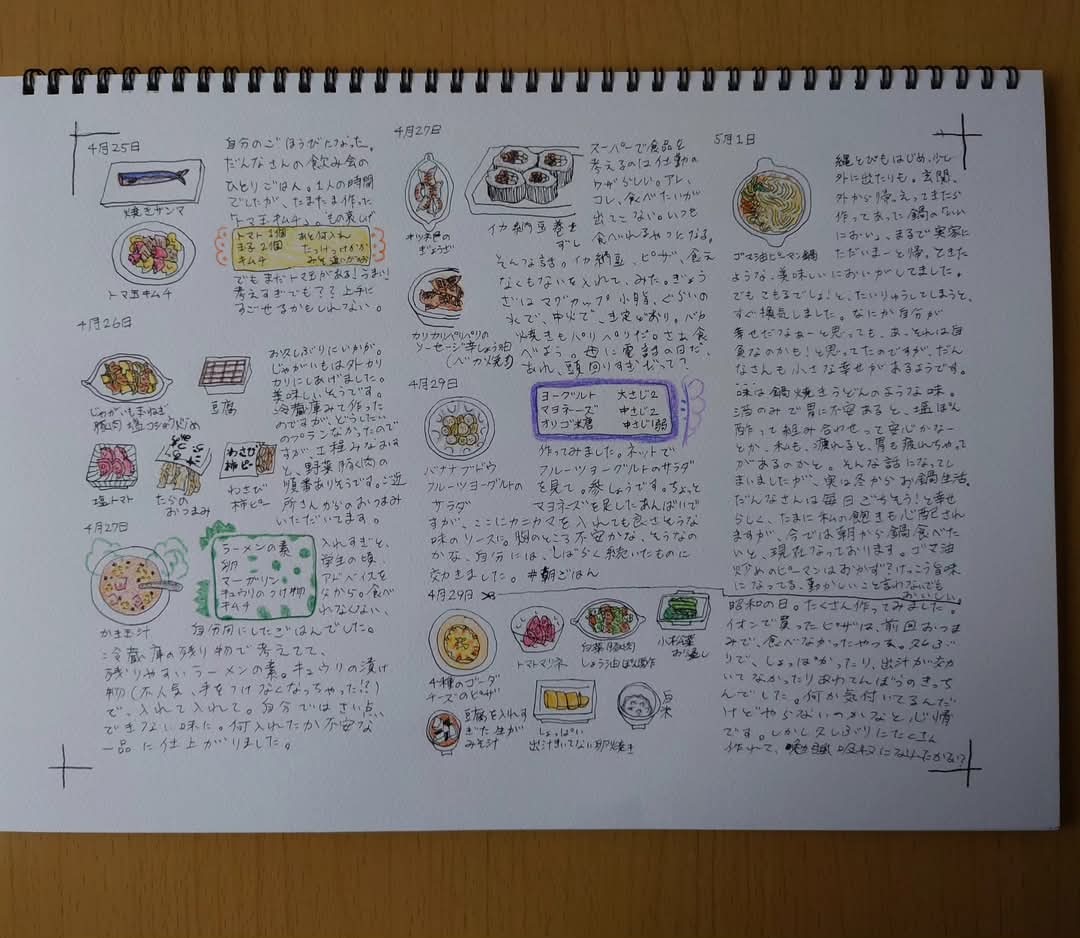 4月25日
焼きサンマ
トマ玉キムチ
自分のごほうびになった。
だんなさんの飲み会の
ひとりごはん。1人の時間
でしたが、たまたま作った
トマ玉キムチ、
トマト 1個
キムチ
でもまだトマ玉がある！うまい！
考えすぎでも？？上手に
すごせるかもしれない。
4月26日
じゃがいもまねぎ
豚肉 塩コショウ炒め
豆腐
塩トマト
たらの
おつまみ
わさび
柿ピー
わさび
柿ピー
お久しぶりにいかが。
じゃがいもは外カリ
カリにしあげました。
美味しいそうです。
冷蔵庫みて作った
のですが、どうしたい
のプランなかったので
すが、工程みなおす
と、野菜 豚肉の
順番ありそうです。ご近
所さんからのおつまみ
いただいてます。
4月27日
かき玉汁
ラーメンの素
卵
マーガリン
キュウリのつけ物
キムチ
入れすぎと、
学生の頃、
アドバイスを
ながら。食べ
れなくない、
自分用にしたごはんでした。
冷蔵庫の残り物で考えてて、
残りやすいラーメンの素。キュウリの漬け
物(不人気、手をつけなくなっちゃった!!)
で、入れて入れて。自分ではさい点
できない味に。何入れたか不安な
一品に仕上がりました。
4月27日
ぎょうざ
イカ納豆巻き
ずし
カリカリペリペリの
ソーセージ辛しょう油
スーパーで食品を
考えるのは仕事の
ワザらしい。アレ、
コレ、食べたいが
出てこない。いつも
食べれるやつになる。
そんな話。イカ納豆、ピザ、食え
なくもないを入れて、みた。ぎょう
ざはマグカップ小豚、ぐらいの
水で、中火で、
焼きもパリパリだ。さあ食
べよう。母に電話の日だ、
あれ、頭回りすぎだって？
4月29日
バナナブドウ
フルーツヨーグルトの
サラダ
ヨーグルト 大さじ2
マヨネーズ 中さじ2
オリゴ糖 中さじ1弱
作ってみました。ネットで
フルーツヨーグルトのサラダ
を見て。参しょうです。ちょっと
マヨネーズを足したあんばいで
すが、ここにカニカマを入れても良さそうな
味のソースに。胸のところ不安かな、そうなの
かな、自分には、しばらく続いたものに
効きました。#朝ごはん
4月29日
4種のゴーダ
チーズのピザ
トマトマリネ
白菜豚肉
しょう油
小松菜
豆腐を入れす
ぎた生が
みそ汁
しょっぱい
出汁きいてない卵焼き
白米
5月1日
ゴマ油ピーマン鍋
縄とびもはじめ、少し
外に出たりも。玄関、
外から帰、えってきたら
作ってあった鍋のない
におい、まるで実家に
ただいまーと帰。てきた
ような、美味しいにおいがしてました。
でもこもるでしょ！と、たいりゅうしてしまうと、
すぐ換気しました。なにか自分が
幸せだなぁーと思っても、あ、それは自
負なのかも！と思ってたのですが、だん
なさんも小さな幸せがあるようです。
味は鍋焼きうどんのような味。
酒のみで胃に不安あると、塩ぽん
酢って組み合わせって安心かなー
とか、私も、疲れると、胃も疲れちゃって
があるのかと。そんな話になってし
まいましたが、実は冬からお鍋生活。
だんなさんは毎日ごちそう！と幸せ
らしく、たまに私の飽きも心配され
ますが、今では朝から鍋食べた
いと、現在なっております。ゴマ油
炒めのピーマンはおかず？けっこう旨味
になってる、動かしいこと言わないでも
おいしい。
昭和の日。たくさん作ってみました。
イオンで買ったピザは、前回おつま
みで、食べなかったやつね。久しぶ
りで、しょっぱかったり、出汁が効
いてなかったりあわてんぼうのきっち
んでした。何か気付いてるんだ
けどやらないのかなと心情
です。しかし久しぶりにたくさん
作れて、